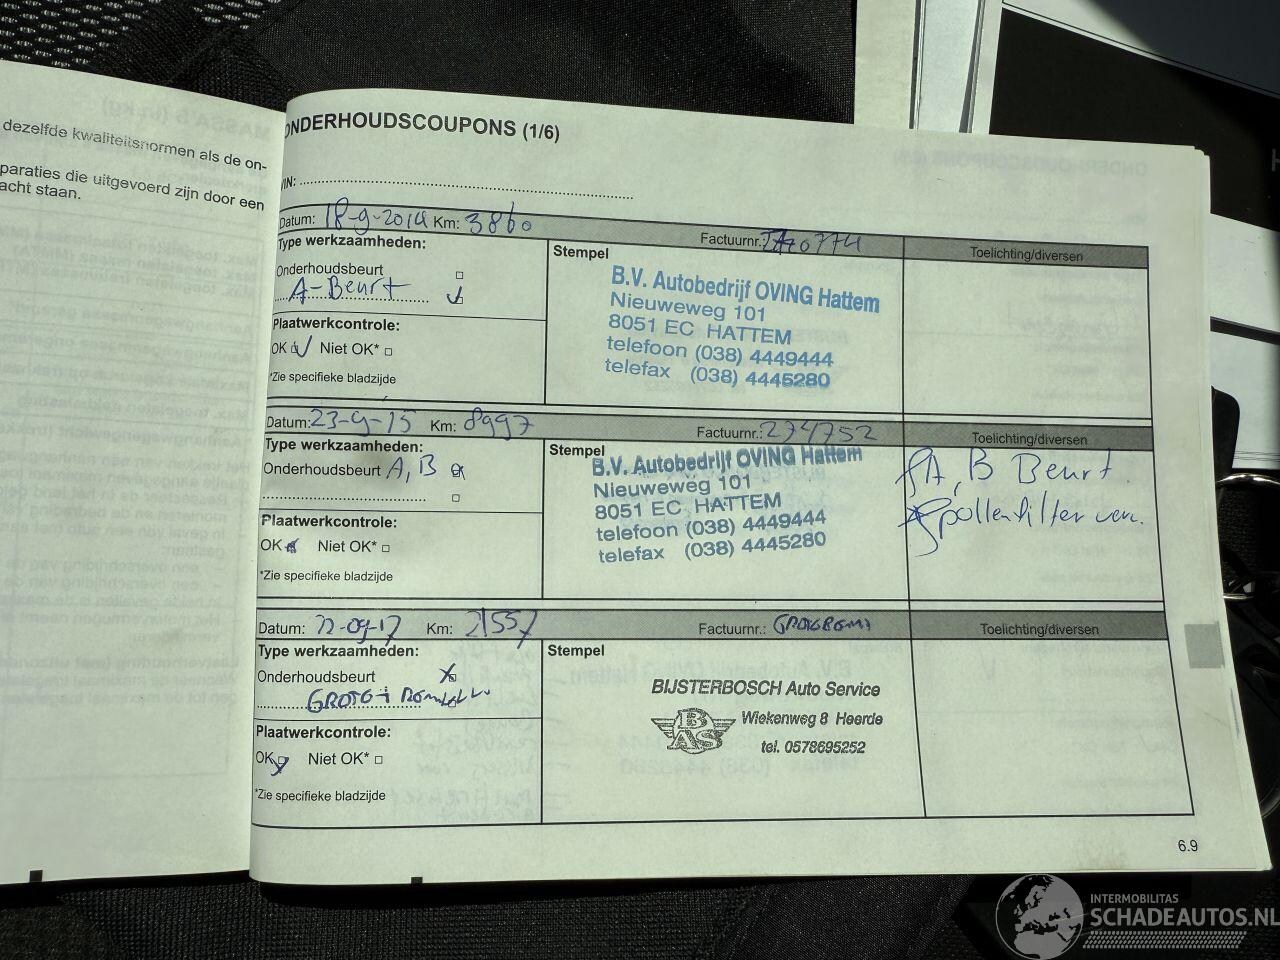 dezelfde kwaliteitsnormen als de on-
paraties die uitgevoerd zijn door een
acht staan.
ONDERHOUDSCOUPONS (1/6)
VIN:
Datum: 18-9-2014 Km: 3860 Factuurnr.: Toelichting/diversen
Type werkzaamheden:
Stempel
Onderhoudsbeurt
A-Beurt
Plaatwerkcontrole:
OK Niet OK*
*Zie specifieke bladzijde
B.V. Autobedrijf OVING Hattem
Nieuweweg 101
8051 EC HATTEM
telefoon (038) 4449444
telefax (038) 4445280
Datum: 23-9-15 Km: 8997 Factuurnr.: 274752 Toelichting/diversen
Type werkzaamheden:
Stempel
Onderhoudsbeurt A, B
Plaatwerkcontrole:
OK Niet OK*
*Zie specifieke bladzijde
B.V. Autobedrijf OVING Hattem
Nieuweweg 101
8051 EC HATTEM
telefoon (038) 4449444
telefax (038) 4445280
A, B Beurt
pollenfilter verv.
Datum: 22-09-17 Km: 21557 Factuurnr.: Toelichting/diversen
Type werkzaamheden:
Stempel
Onderhoudsbeurt
Plaatwerkcontrole:
OK Niet OK*
*Zie specifieke bladzijde
BIJSTERBOSCH Auto Service
BAS
Wiekenweg 8 Heerde
tel. 0578695252
6.9
INTERMOBILITAS
SCHADEAUTOS.NL